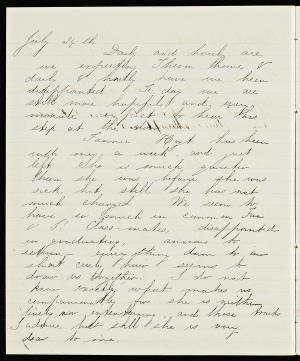 July 24th
Daily and hourly are
we expecting Thom home, &
daily & hourly have we been
disappointed. To day we are
still more hopeful and every
minute expect to hear his
step at the
Fannie Hyt has been
with me a week and just
left. She is much quieter
than she was before she was
sick but still she has not
much changed. We seem to
have so much in common Fan
& I! Class-mates, disappointed
in graduating, anxious to
return, everything down to our
short curly hair seems to
draw us together. I do not
know exactly what makes us
companionable for she is
nor and those traits
I adore, but still she is very
dear to me.